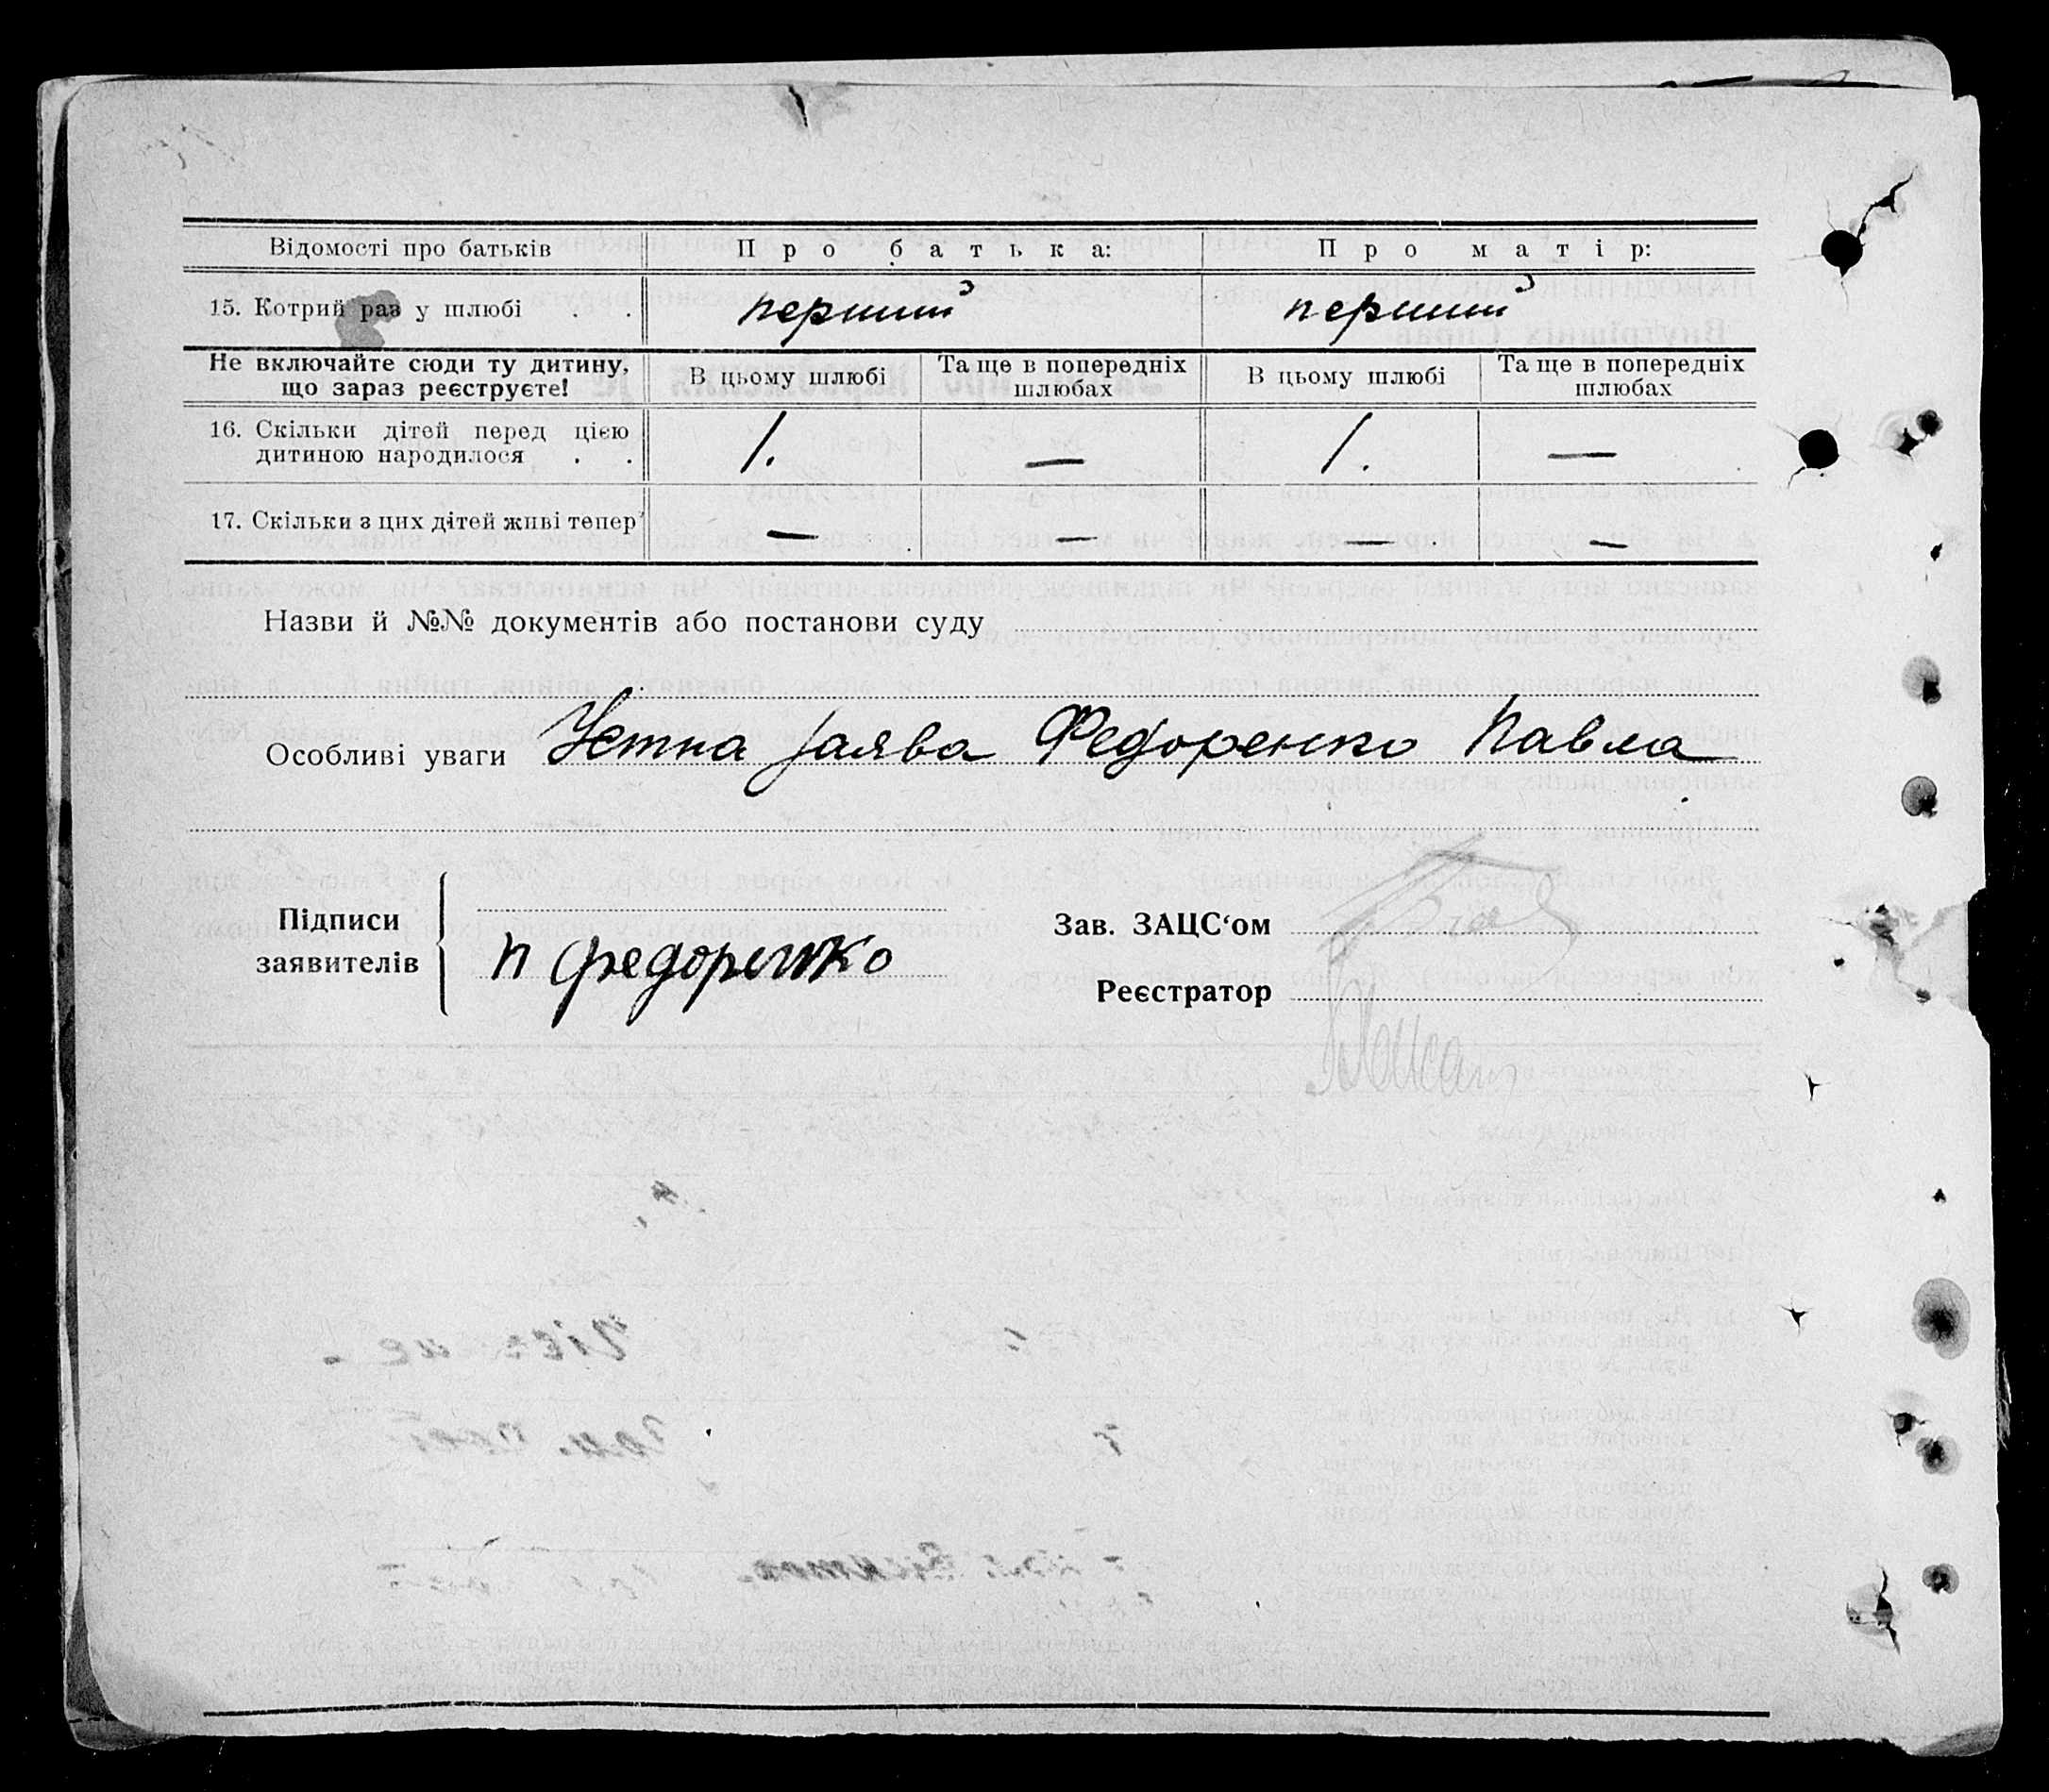 Відомості про батьків Про батька: Про матір:
15. Котрий раз у шлюбі . . перший перший
Не включайте сюди ту дитину, що зараз реєструєте! В цьому шлюбі Та ще в попередніх шлюбах В цьому шлюбі Та ще в попередніх шлюбах
16. Скільки дітей перед цією
дитиною народилося . . 1. — 1. —
17. Скільки з цих дітей живі тепер — — — —
Назви й №№ документів або постанови суду
Особливі уваги Устна заява Федоренко Павла
Підписи
заявителів П Федоренко
Зав. ЗАЦС‘ом
Реєстратор